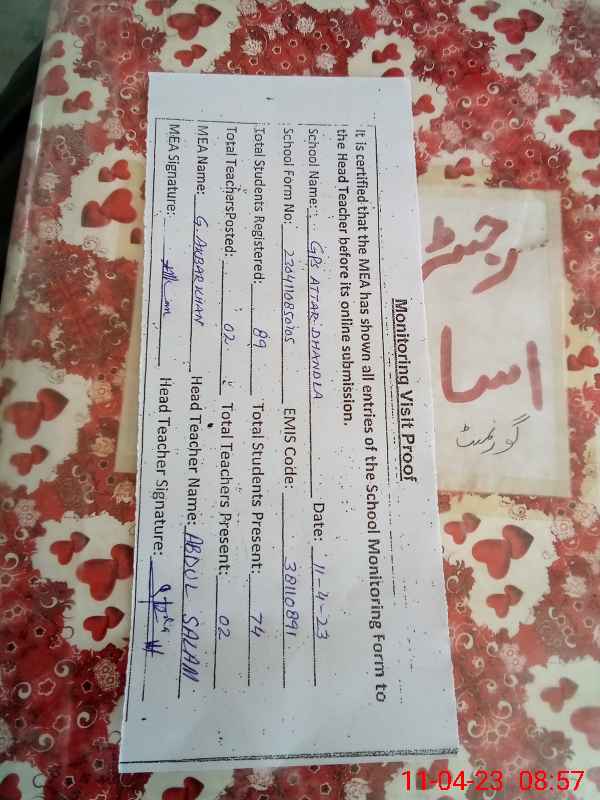 Monitoring Visit Proof
It is certified that the MEA has shown all entries of the School Monitoring Form to
the Head Teacher before its online submission.
School Name: GPS ATTAR DHANDLA Date: 11-4-23
School Form No: 230411085005 EMIS Code: 38110891
Total Students Registered: 89 Total Students Present: 74
Total TeachersPosted: 02 Total Teachers Present: 02
MEA Name: G. AKBAR KHAN Head Teacher Name: ABDUL SALAM
MEA Signature: Head Teacher Signature:
رجسٹر
اسا
گورنمنٹ
11-04-23 08:57